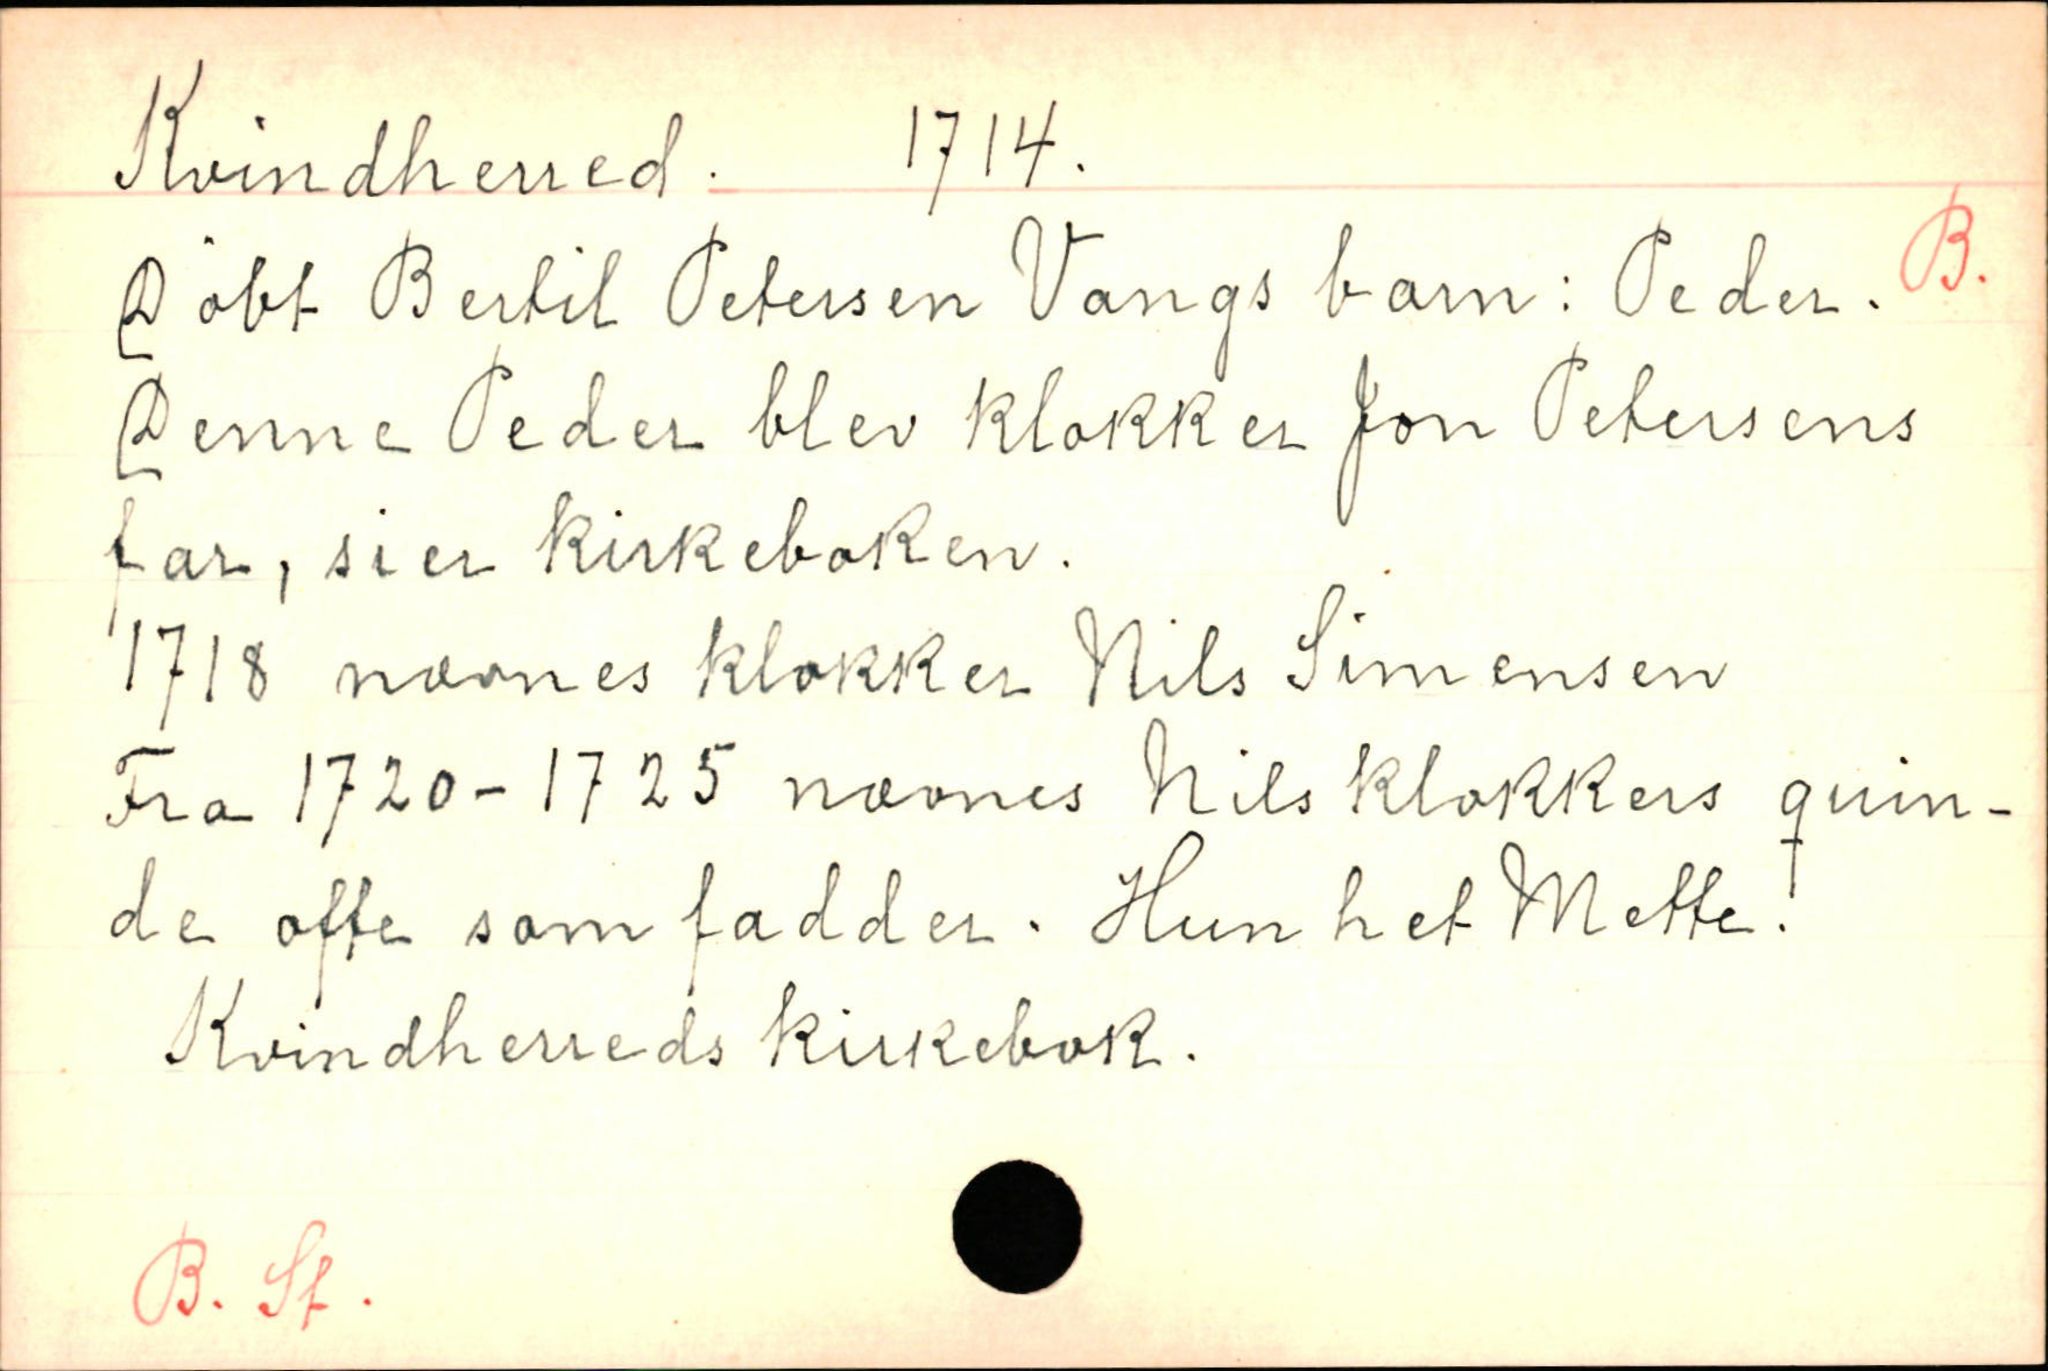 Kvindherred. 1714.
B.
Döbt Bertil Petersen Vangs barn: Peder.
Denne Peder blev klokker Jon Petersens
far, sier kirkeboken.
1718 nævnes klokker Nils Simensen
Fra 1720-1725 nævnes Nils klokkers quin-
de ofte som fadder. Hun het Mette!
Kvindherreds kirkebok.
B. St.